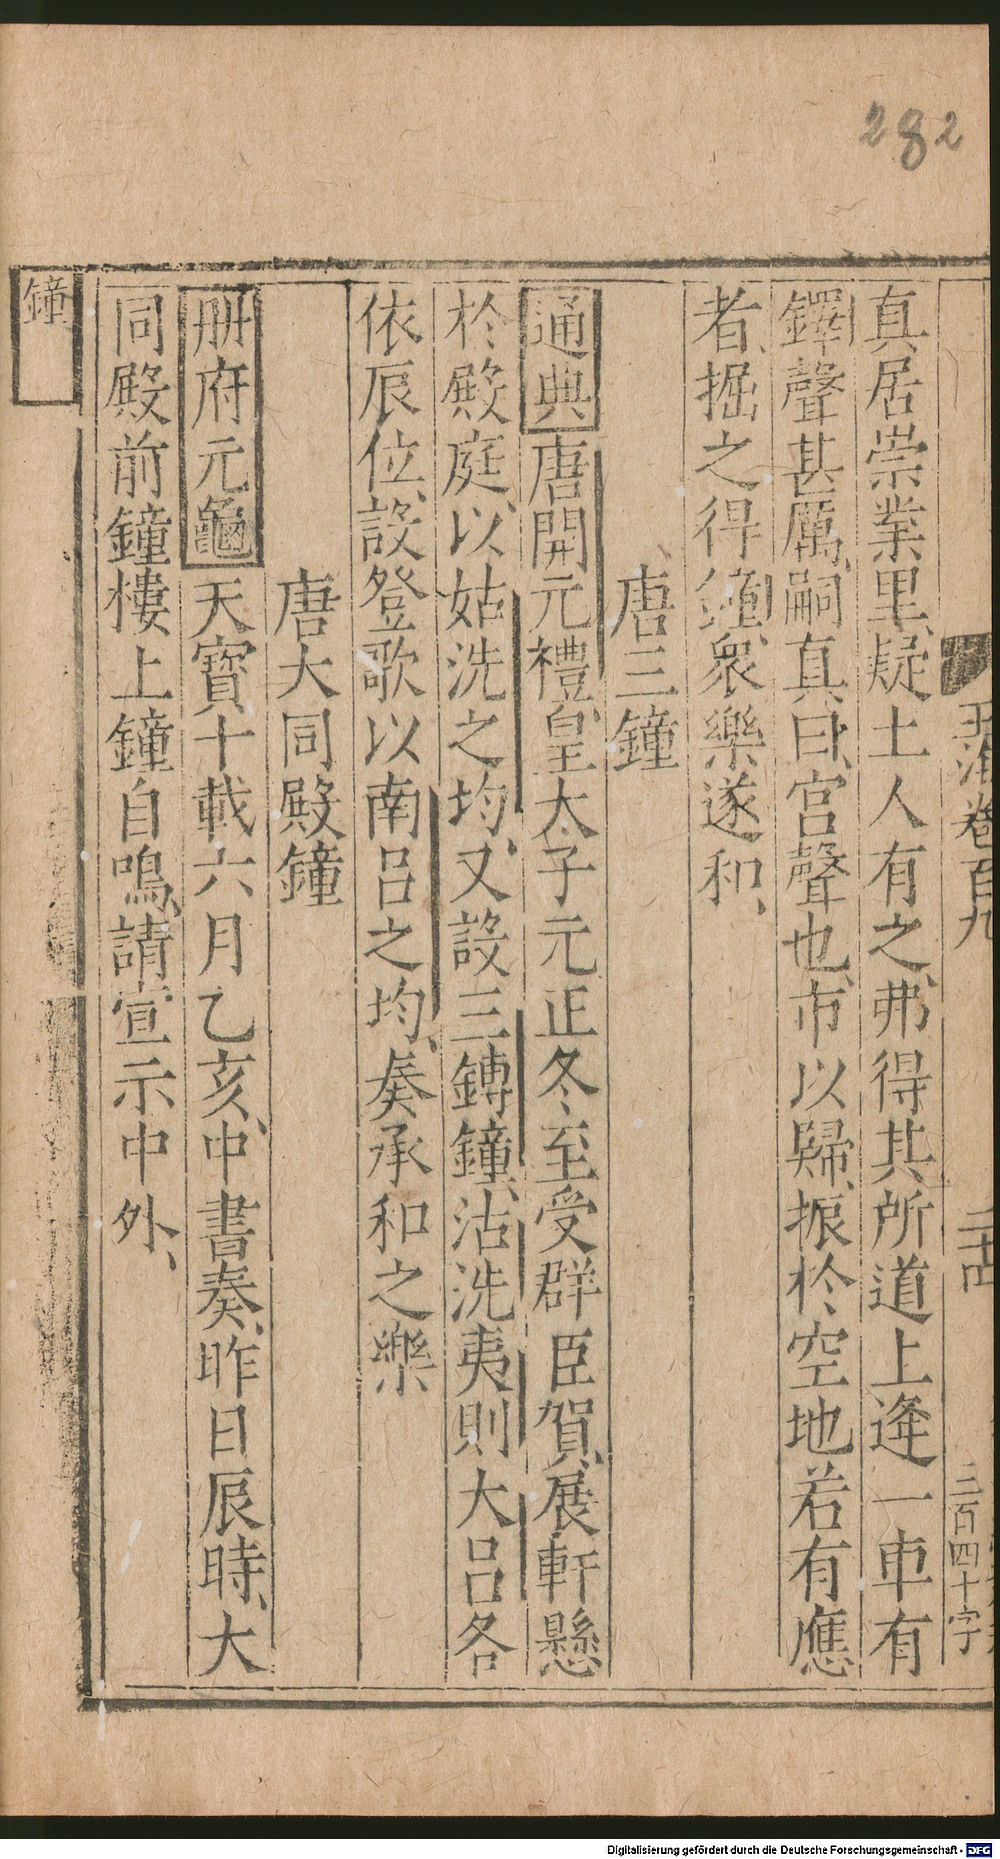 282
玉海卷百九
二十四
三百四十字
真居崇業里、疑土人有之、弗得其所、道上逢一車有
鐸聲甚厲、嗣真曰、宮聲也、市以歸、振於空地若有應
者、掘之得鐘、衆樂遂和、
唐三鐘
通典唐開元禮、皇太子元正冬至受群臣賀、展軒懸
於殿庭、以姑洗之均、又設三鏄鐘、沽洗夷則大呂各
依辰位、設登歌以南呂之均、奏承和之樂
唐大同殿鐘
册府元龜天寶十載六月乙亥、中書奏、昨日辰時、大
同殿前鐘樓上鐘自鳴、請宣示中外、
鐘
Digitalisierung gefördert durch die Deutsche Forschungsgemeinschaft - DFG